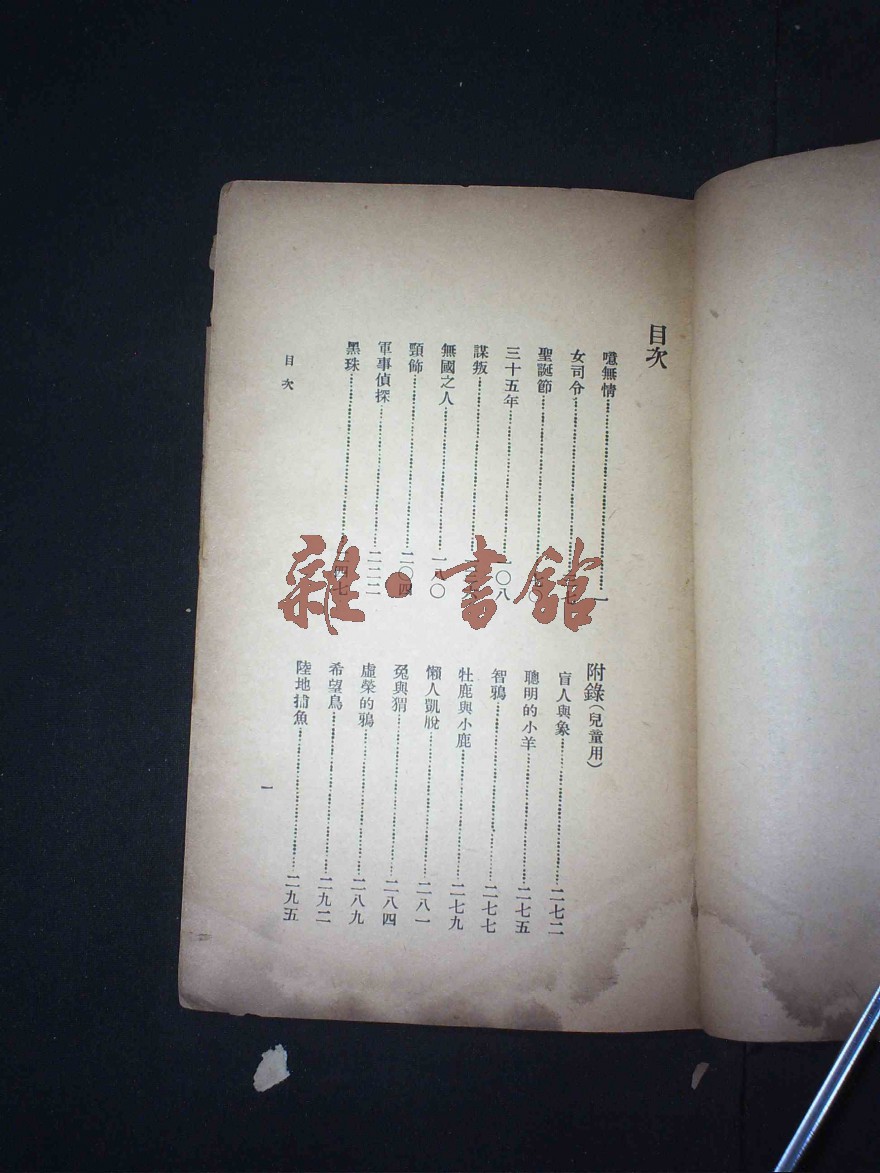 目次
噫無情……一
女司令……七
聖誕節……七〇
三十五年……一〇八
謀叛……
無國之人……一八〇
頸飾……二〇四
軍事偵探……二二二
黑珠……二四七
附錄(兒童用)
盲人與象……二七二
聰明的小羊……二七五
智鴉……二七七
牡鹿與小鹿……二七九
懶人凱脫……二八一
兔與猬……二八四
虛榮的鴉……二八九
希望鳥……二九二
陸地捕魚……二九五
目次
一
雜·書館